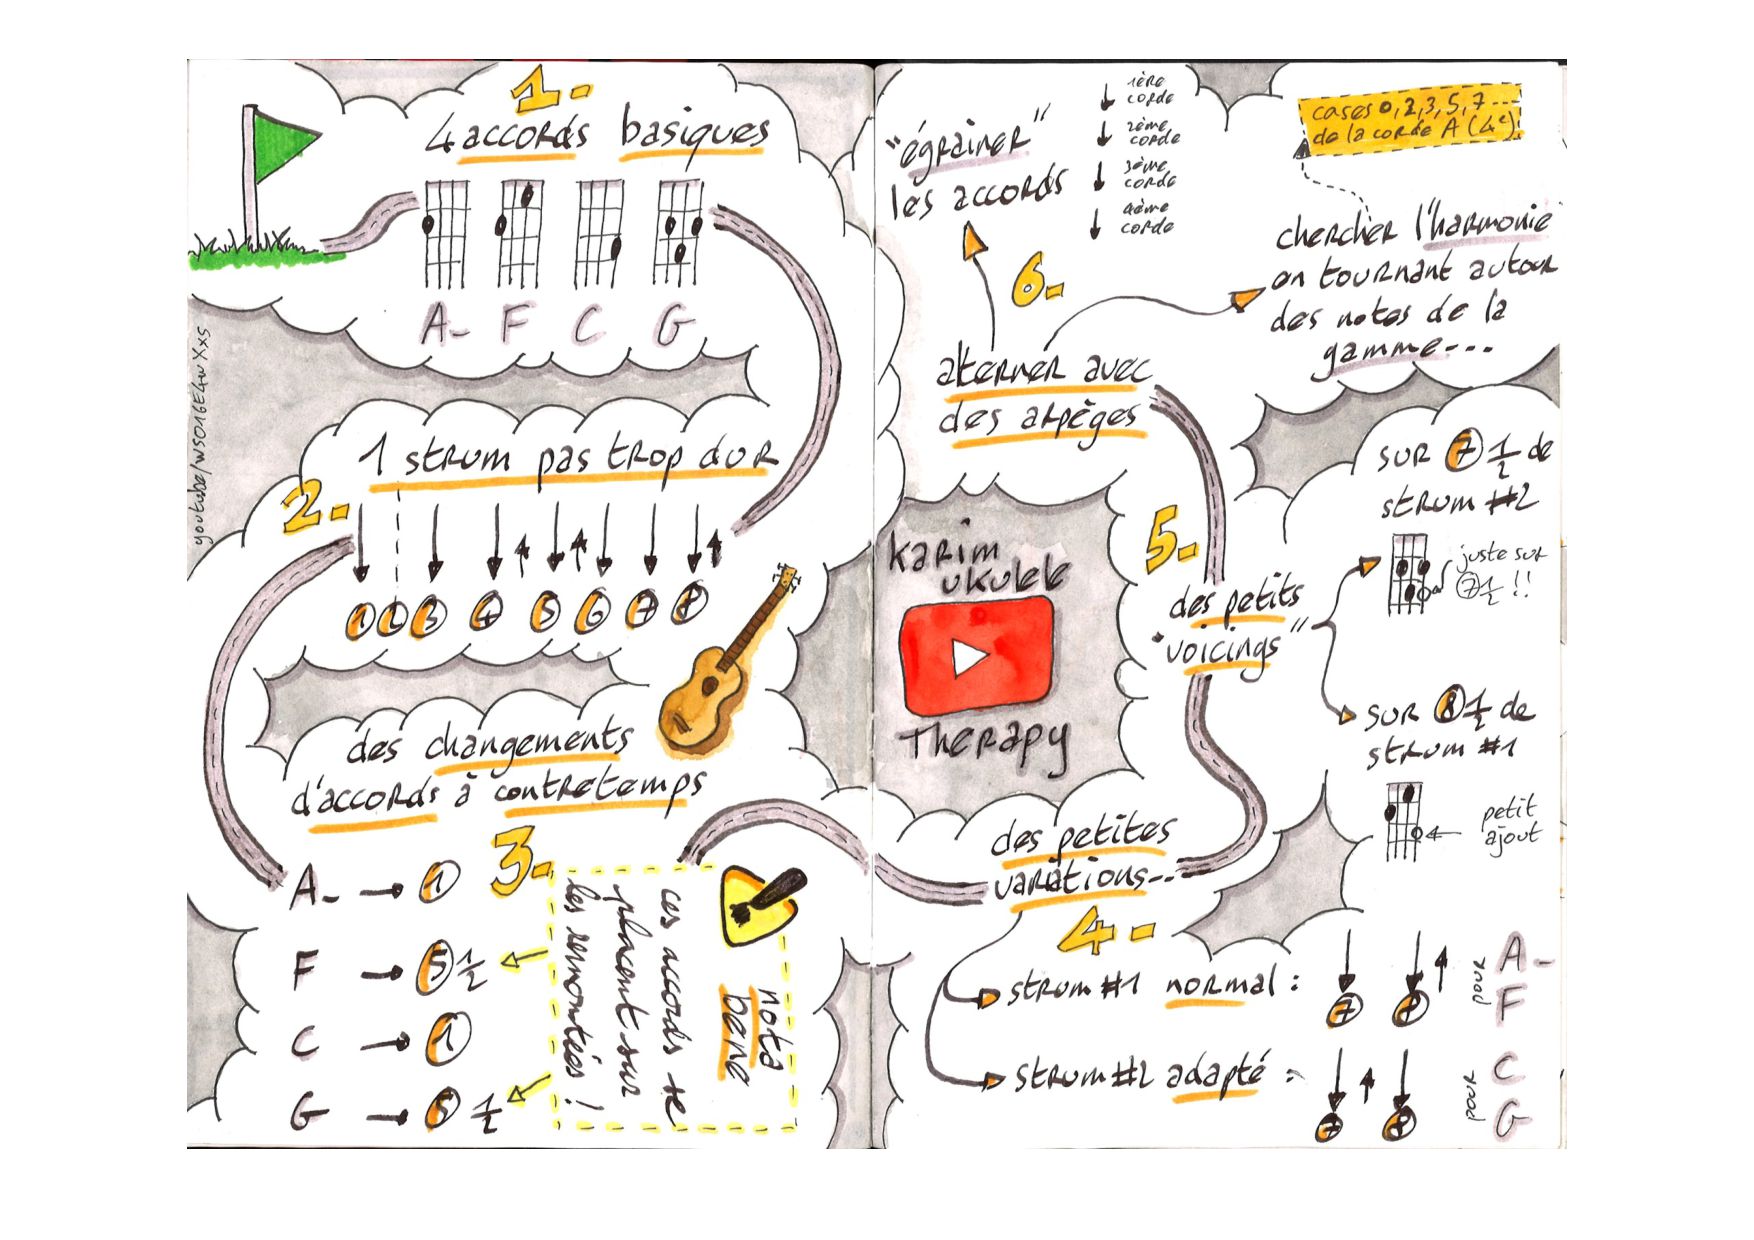 1-
4 accords basiques
A- F C G
youtube/wS016E4wXxs
2-
1 strum pas trop dur
1 2 3 4 5 6 7 8
des changements
d'accords à contretemps
3-
A- → 1
F → 5 1/2
C → 1
G → 5 1/2
nota
bene
ces accords se
placent sur
les remontées !
des petites
variations...
4-
strum #1 normal :
7 8
pour
A-
F
strum #2 adapté :
7 8
pour
C
G
5-
des petits
"voicings"
sur 7 1/2 de
strum #2
juste sur
7 1/2 !!
sur 8 1/2 de
strum #1
petit
ajout
6-
alterner avec
des arpèges
"égrainer"
les accords
1ère
corde
2ème
corde
3ème
corde
4ème
corde
chercher l'harmonie
en tournant autour
des notes de la
gamme---
cases 0,2,3,5,7----
de la corde A (4e).
Karim
ukulele
Therapy